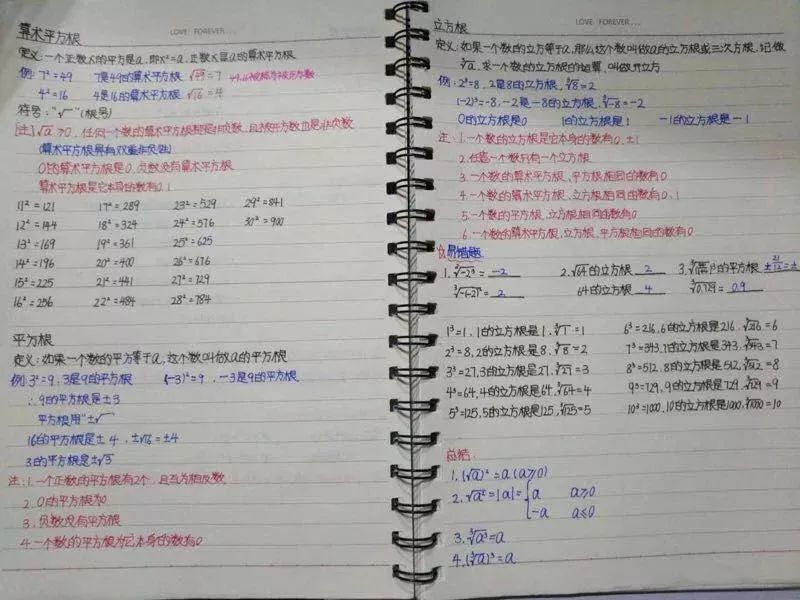 LOVE FOREVER...
算术平方根
定义:一个正数x的平方是a,即x²=a,正数x是a的算术平方根
例:7²=49 7是49的算术平方根 √49=7
4²=16 4是16的算术平方根 √16=4
符号:"√‾"(根号)
注:√a≥0,任何一个数的算术平方根都是非负数,且被开方数也是非负数
(算术平方根具有双重非负性)
0的算术平方根是0,负数没有算术平方根
算术平方根是它本身的数有0,1
11²=121 17²=289 23²=529 29²=841
12²=144 18²=324 24²=576 30²=900
13²=169 19²=361 25²=625
14²=196 20²=400 26²=676
15²=225 21²=441 27²=729
16²=256 22²=484 28²=784
平方根
定义:如果一个数的平方等于a,这个数叫做a的平方根
例:3²=9,3是9的平方根 (-3)²=9,-3是9的平方根
∴9的平方根是±3
平方根用"±√‾"
16的平方根是±4,±√16=±4
3的平方根是±√3
注:1.一个正数的平方根有2个,且互为相反数
2.0的平方根为0
3.负数没有平方根
4.一个数的平方根为它本身的数有0
LOVE FOREVER...
立方根
定义:如果一个数的立方等于a,那么这个数叫做a的立方根或三次方根,记做
∛a,求一个数的立方根的运算,叫做开立方
例:2³=8,2是8的立方根,∛8=2
(-2)³=-8,-2是-8的立方根,∛-8=-2
0的立方根是0 1的立方根是1 -1的立方根是-1
注:1.一个数的立方根是它本身的数有0,±1
2.任意一个数只有一个立方根
3.一个数的算术平方根、平方根相同的数有0
4.一个数的算术平方根、立方根相同的数有0,1
5.一个数的平方根、立方根相同的数有0
6.一个数的算术平方根、立方根、平方根相同的数有0
易错题
1.∛-2³=-2 2.√64的立方根 2 3. 的平方根
2 64的立方根 4 ∛0.729=0.9
1³=1,1的立方根是1,∛1=1 6³=216,6的立方根是216,∛216=6
2³=8,2的立方根是8,∛8=2 7³=343,7的立方根是343,∛343=7
3³=27,3的立方根是27,∛27=3 8³=512,8的立方根是512,∛512=8
4³=64,4的立方根是64,∛64=4 9³=729,9的立方根是729,∛729=9
5³=125,5的立方根是125,∛125=5 10³=1000,10的立方根是1000,∛1000=10
总结
1.(√a)²=a(a≥0)
2.√a²=|a|={a a≥0
-a a≤0
3.∛a³=a
4.(∛a)³=a